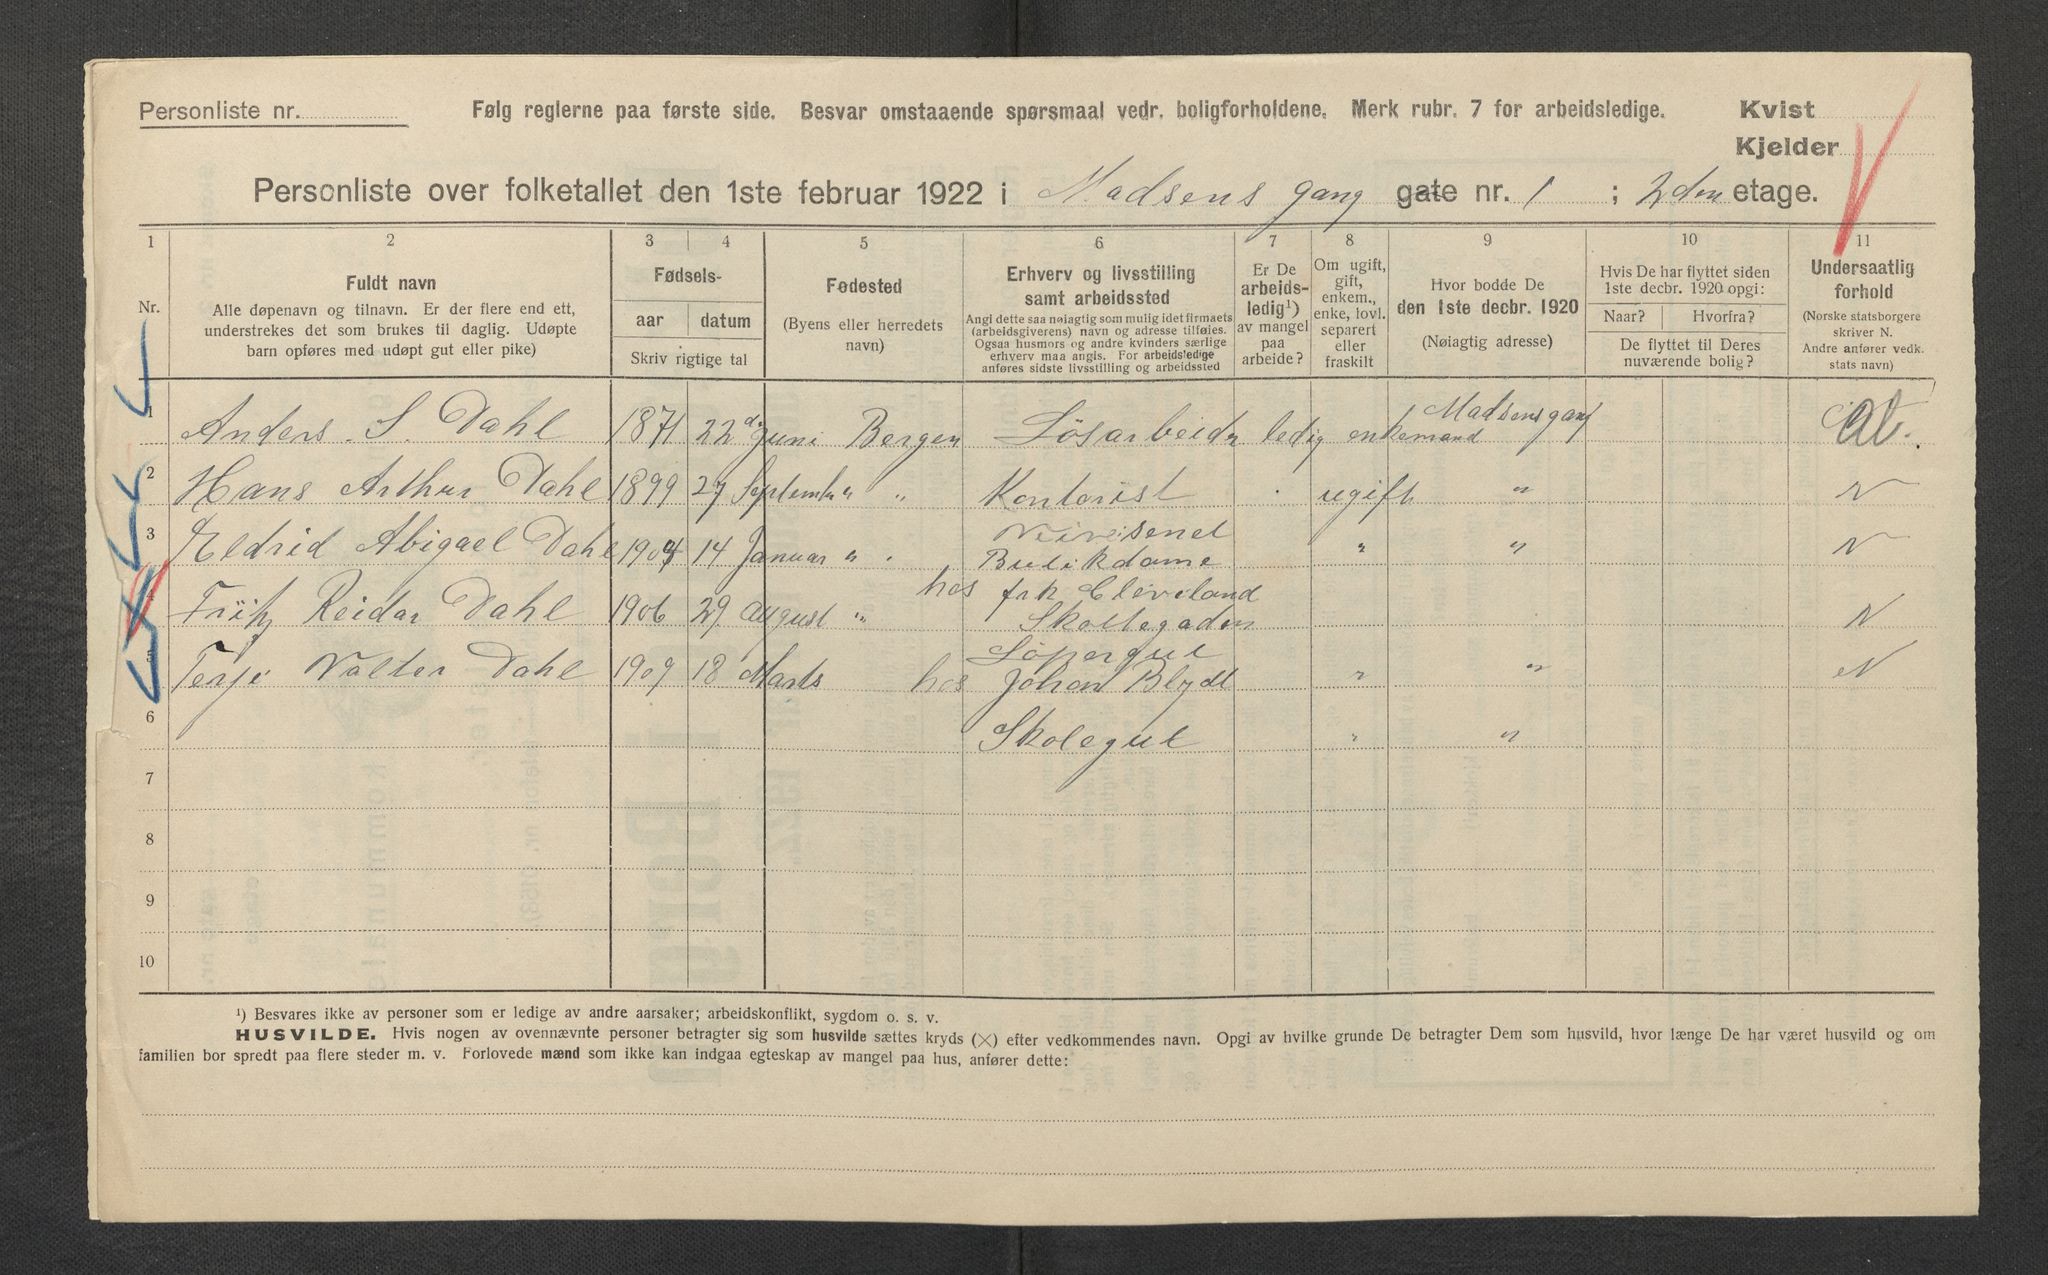 Personliste nr.
Følg reglerne paa første side. Besvar omstaaende spørsmaal vedr. boligforholdene. Merk rubr. 7 for arbeidsledige.
Kvist
Kjelder
Personliste over folketallet den 1ste februar 1922 i Madsens gang gate nr. 1 ; 2den etage.
1 2 3 4 5 6 7 8 9 10 11
Nr.
Fuldt navn
Alle døpenavn og tilnavn. Er der flere end ett,
understrekes det som brukes til daglig. Udøpte
barn opføres med udøpt gut eller pike)
Fødsels-
aar datum
Skriv rigtige tal
Fødested
(Byens eller herredets
navn)
Erhverv og livsstilling
samt arbeidssted
Angi dette saa nøiagtig som mulig idet firmaets
(arbeidsgiverens) navn og adresse tilføies.
Ogsaa husmors og andre kvinders særlige
erhverv maa angis. For arbeidsledige
anføres sidste livsstilling og arbeidssted
Er De
arbeids-
ledig¹)
av mangel
paa
arbeide?
Om ugift,
gift,
enkem.,
enke, lovl.
separert
eller
fraskilt
Hvor bodde De
den 1ste decbr. 1920
(Nøiagtig adresse)
Hvis De har flyttet siden
1ste decbr. 1920 opgi:
Naar? Hvorfra?
De flyttet til Deres
nuværende bolig?
Undersaatlig
forhold
(Norske statsborgere
skriver N.
Andre anfører vedk.
stats navn)
1 Anders S. Dahl 1871 22de juni Bergen Løsarbeider ledig enkemand Madsens gang N.
2 Hans Arthur Dahl 1899 27 September " Kontorist ugift " N
3 Eldrid Abigael Dahl 1904 14 Januar " " " N
Butikdame
4 Fritz Reidar Dahl 1906 29 August " hos frk Cleveland N
Skoltegaden
Løpergut
5 Terje Valter Dahl 1909 18 Marts hos Johan Blydt " " N
6 Skolegut " "
7
8
9
10
¹) Besvares ikke av personer som er ledige av andre aarsaker; arbeidskonflikt, sygdom o. s. v.
HUSVILDE. Hvis nogen av ovennævnte personer betragter sig som husvilde sættes kryds (×) efter vedkommendes navn. Opgi av hvilke grunde De betragter Dem som husvild, hvor længe De har været husvild og om
familien bor spredt paa flere steder m. v. Forlovede mænd som ikke kan indgaa egteskap av mangel paa hus, anfører dette: